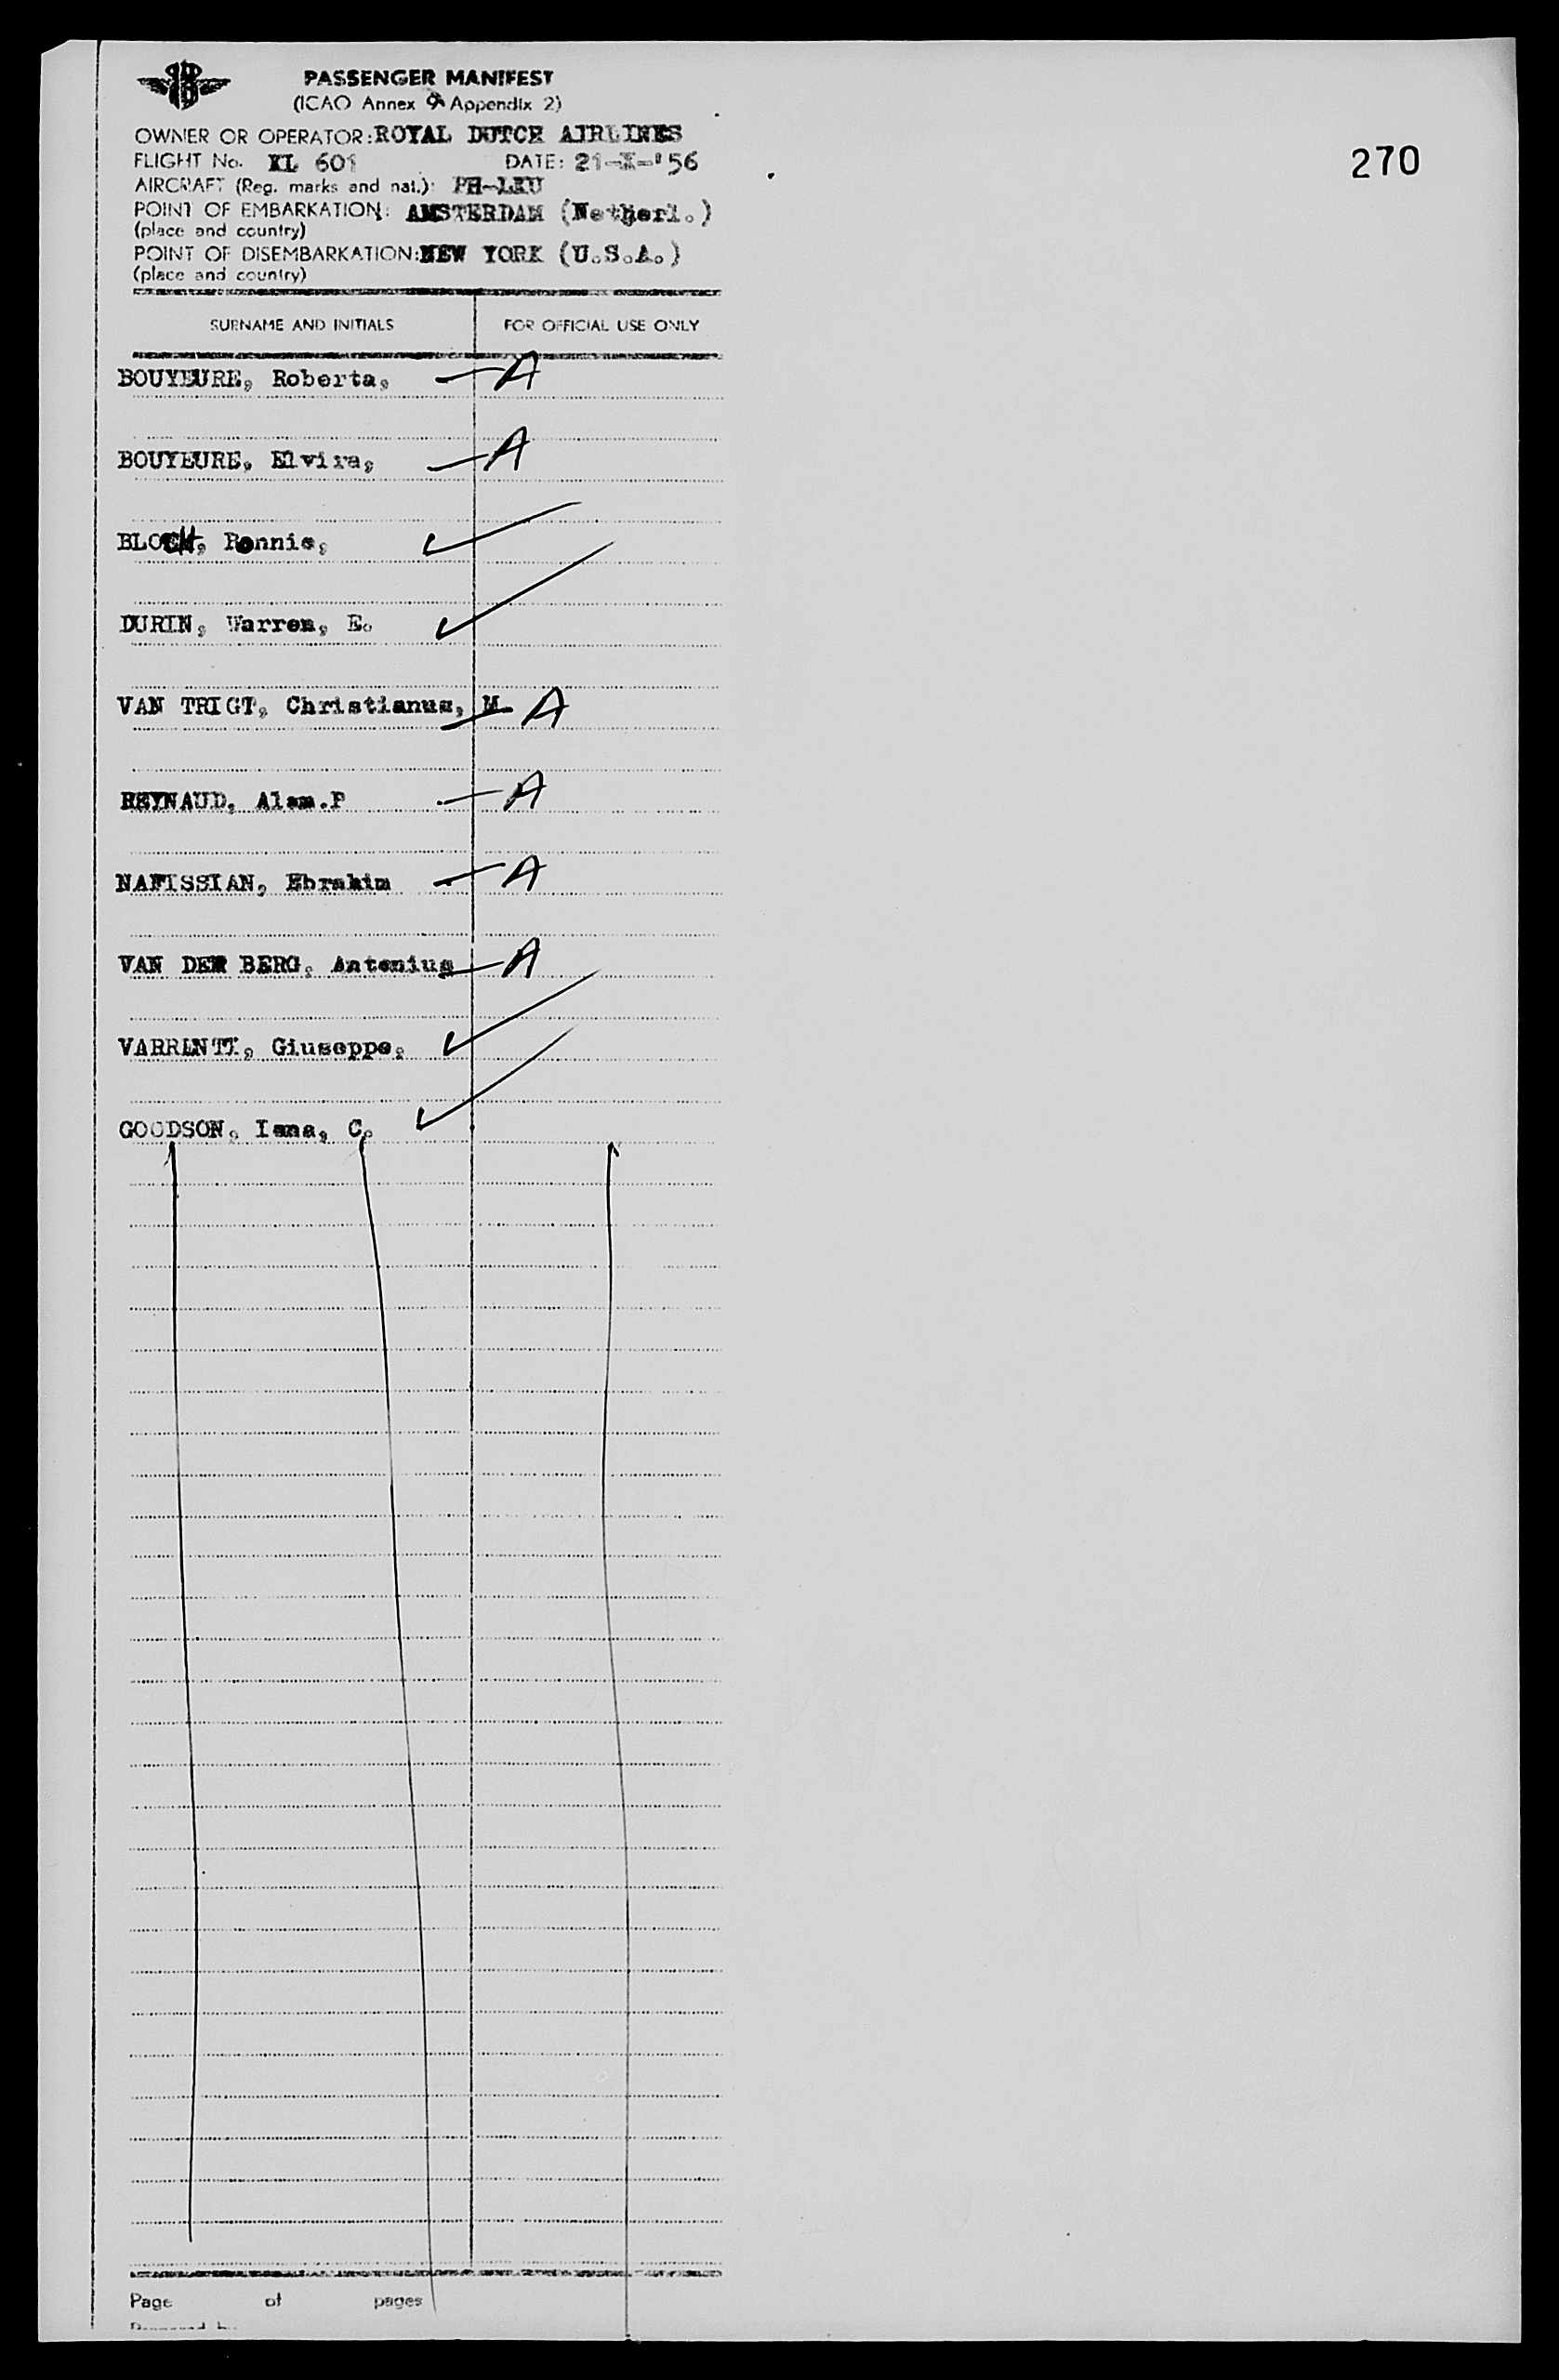 PASSENGER MANIFEST
(ICAO Annex 9 Appendix 2)
OWNER OR OPERATOR: ROYAL DUTCH AIRLINES
FLIGHT No. KL 601 DATE: 21-X-'56
270
AIRCRAFT (Reg. marks and nat.): PH-LKU
POINT OF EMBARKATION: AMSTERDAM (Netherl.)
(place and country)
POINT OF DISEMBARKATION: NEW YORK (U.S.A.)
(place and country)
SURNAME AND INITIALS FOR OFFICIAL USE ONLY
BOUYEURE, Roberta, — A
BOUYEURE, Elvira, — A
BLOCH, Ronnie, ✓
DURIN, Warren, E. ✓
VAN TRIGT, Christianus, M — A
REYNAUD, Alam.P — A
NAFISSIAN, Ebrahim — A
VAN DER BERG, Antonius — A
VARRENTI, Giuseppe, ✓
GOODSON, Iana, C. ✓
Page of pages